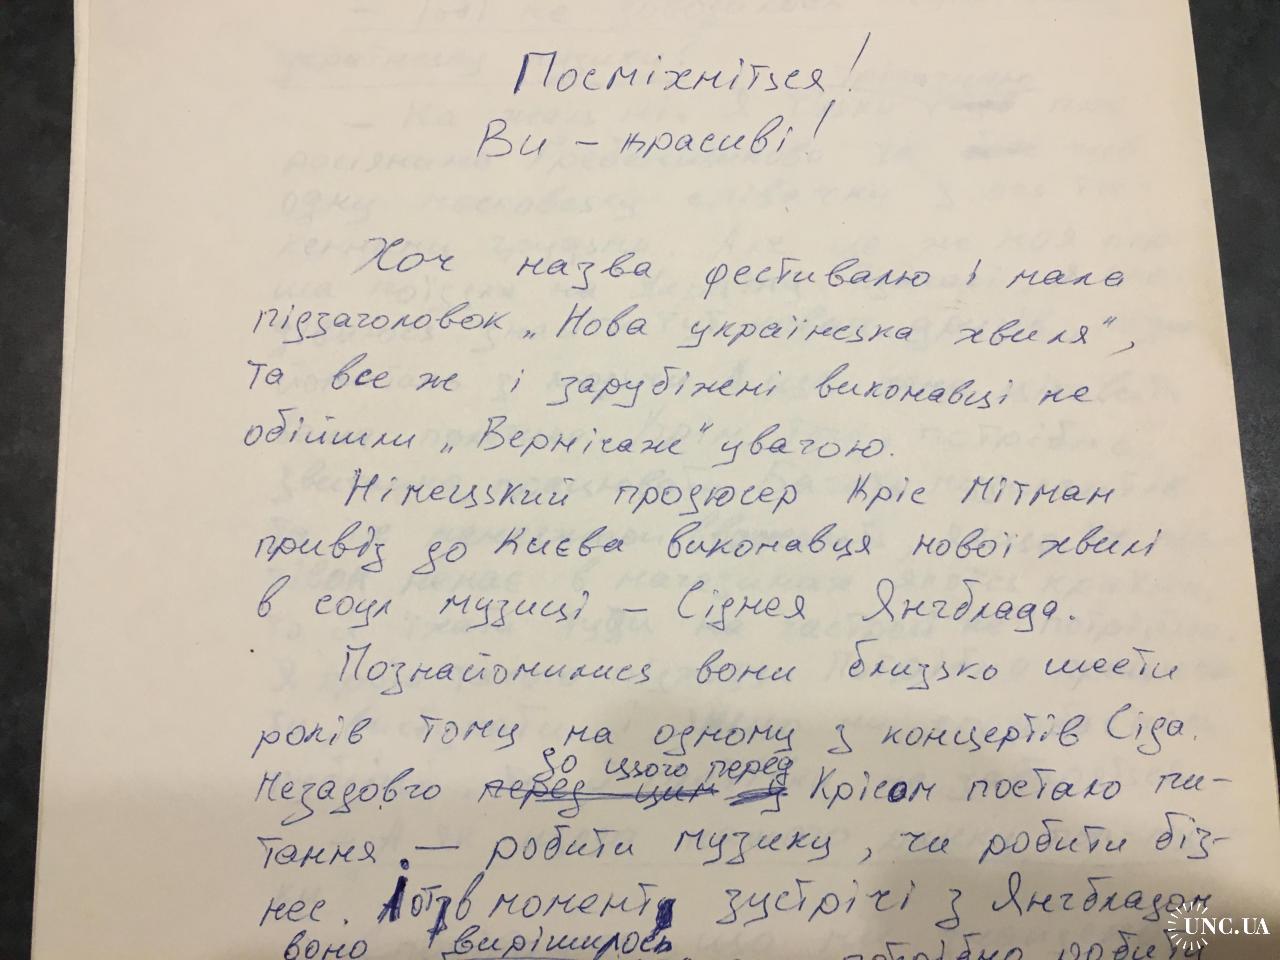 Посміхніться!
Ви - красиві!
Хоч назва фестивалю і мала
підзаголовок „Нова українська хвиля",
та все ж і зарубіжні виконавці не
обійшли „Вернісаж" увагою.
Німецький продюсер Кріс Мітман
привіз до Києва виконавця нової хвилі
в соул музиці - Сіднея Янгблада.
Познайомились вони близько шести
років тому на одному з концертів Сіда.
до цього перед
Незадовго перед цим у Крісом постало пи-
тання - робити музику, чи робити біз-
нес. І от в момент зустрічі з Янгбладом
воно вирішилось потрібно робити
UNC.UA